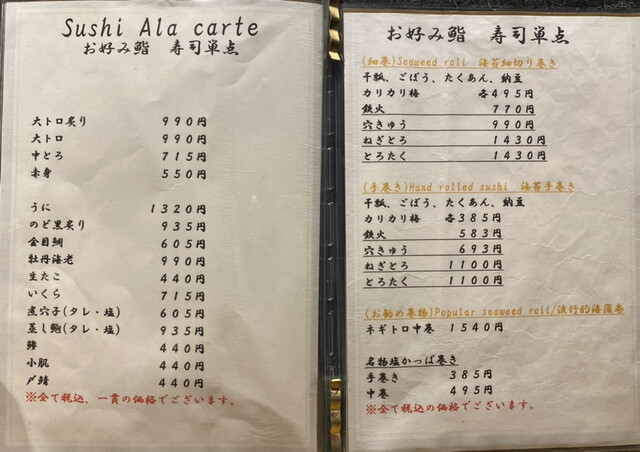 Sushi Ala carte
お好み鮨 寿司単点
大トロ炙り 990円
大トロ 990円
中とろ 715円
赤身 550円
うに 1320円
のど黒炙り 935円
金目鯛 605円
牡丹海老 990円
生たこ 440円
いくら 715円
煮穴子(タレ・塩) 605円
蒸し鮑(タレ・塩) 935円
鯵 440円
小肌 440円
〆鯖 440円
※全て税込、一貫の価格でございます。
お好み鮨 寿司単点
(細巻)Seaweed roll 海苔細切り巻き
干瓢、ごぼう、たくあん、納豆
カリカリ梅 各495円
鉄火 770円
穴きゅう 990円
ねぎとろ 1430円
とろたく 1430円
(手巻き)Hand rolled sushi 海苔手巻き
干瓢、ごぼう、たくあん、納豆
カリカリ梅 各385円
鉄火 583円
穴きゅう 693円
ねぎとろ 1100円
とろたく 1100円
(お勧め巻物)Popular seaweed roll/流行的海藻卷
ネギトロ中巻 1540円
名物塩かっぱ巻き
手巻き 385円
中巻 495円
※全て税込の価格でございます。